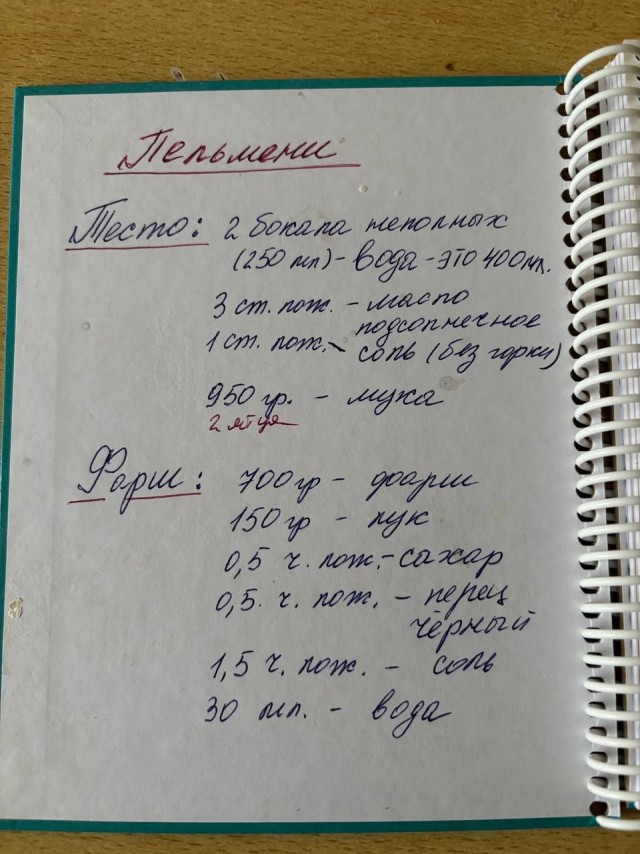 Пельмени
Тесто: 2 бокала неполных
(250 мл) - вода - это 400 мл.
3 ст. лож. - масло
подсолнечное
1 ст. лож. - соль (без горки)
950 гр. - мука
2 яйца
Фарш: 700 гр - фарш
150 гр - лук
0,5 ч. лож. - сахар
0,5. ч. лож. - перец
чёрный
1,5 ч. лож. - соль
30 мл. - вода